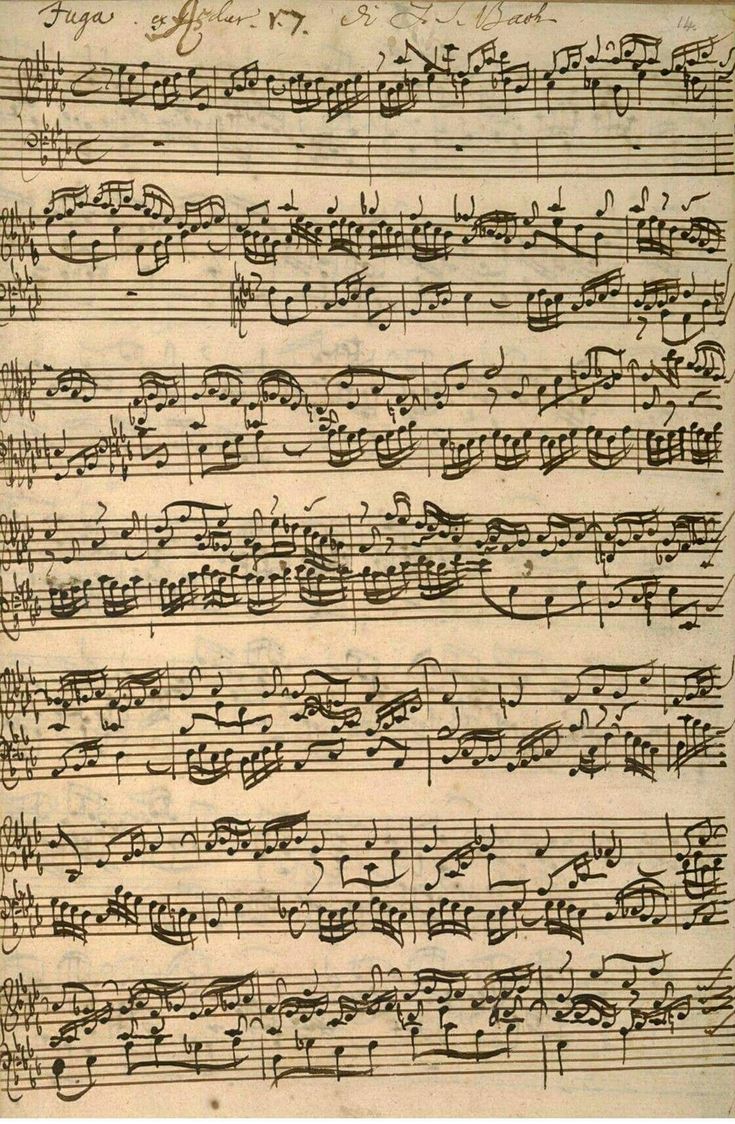 Fuga . ex dur. 17. di J. S. Bach 14.